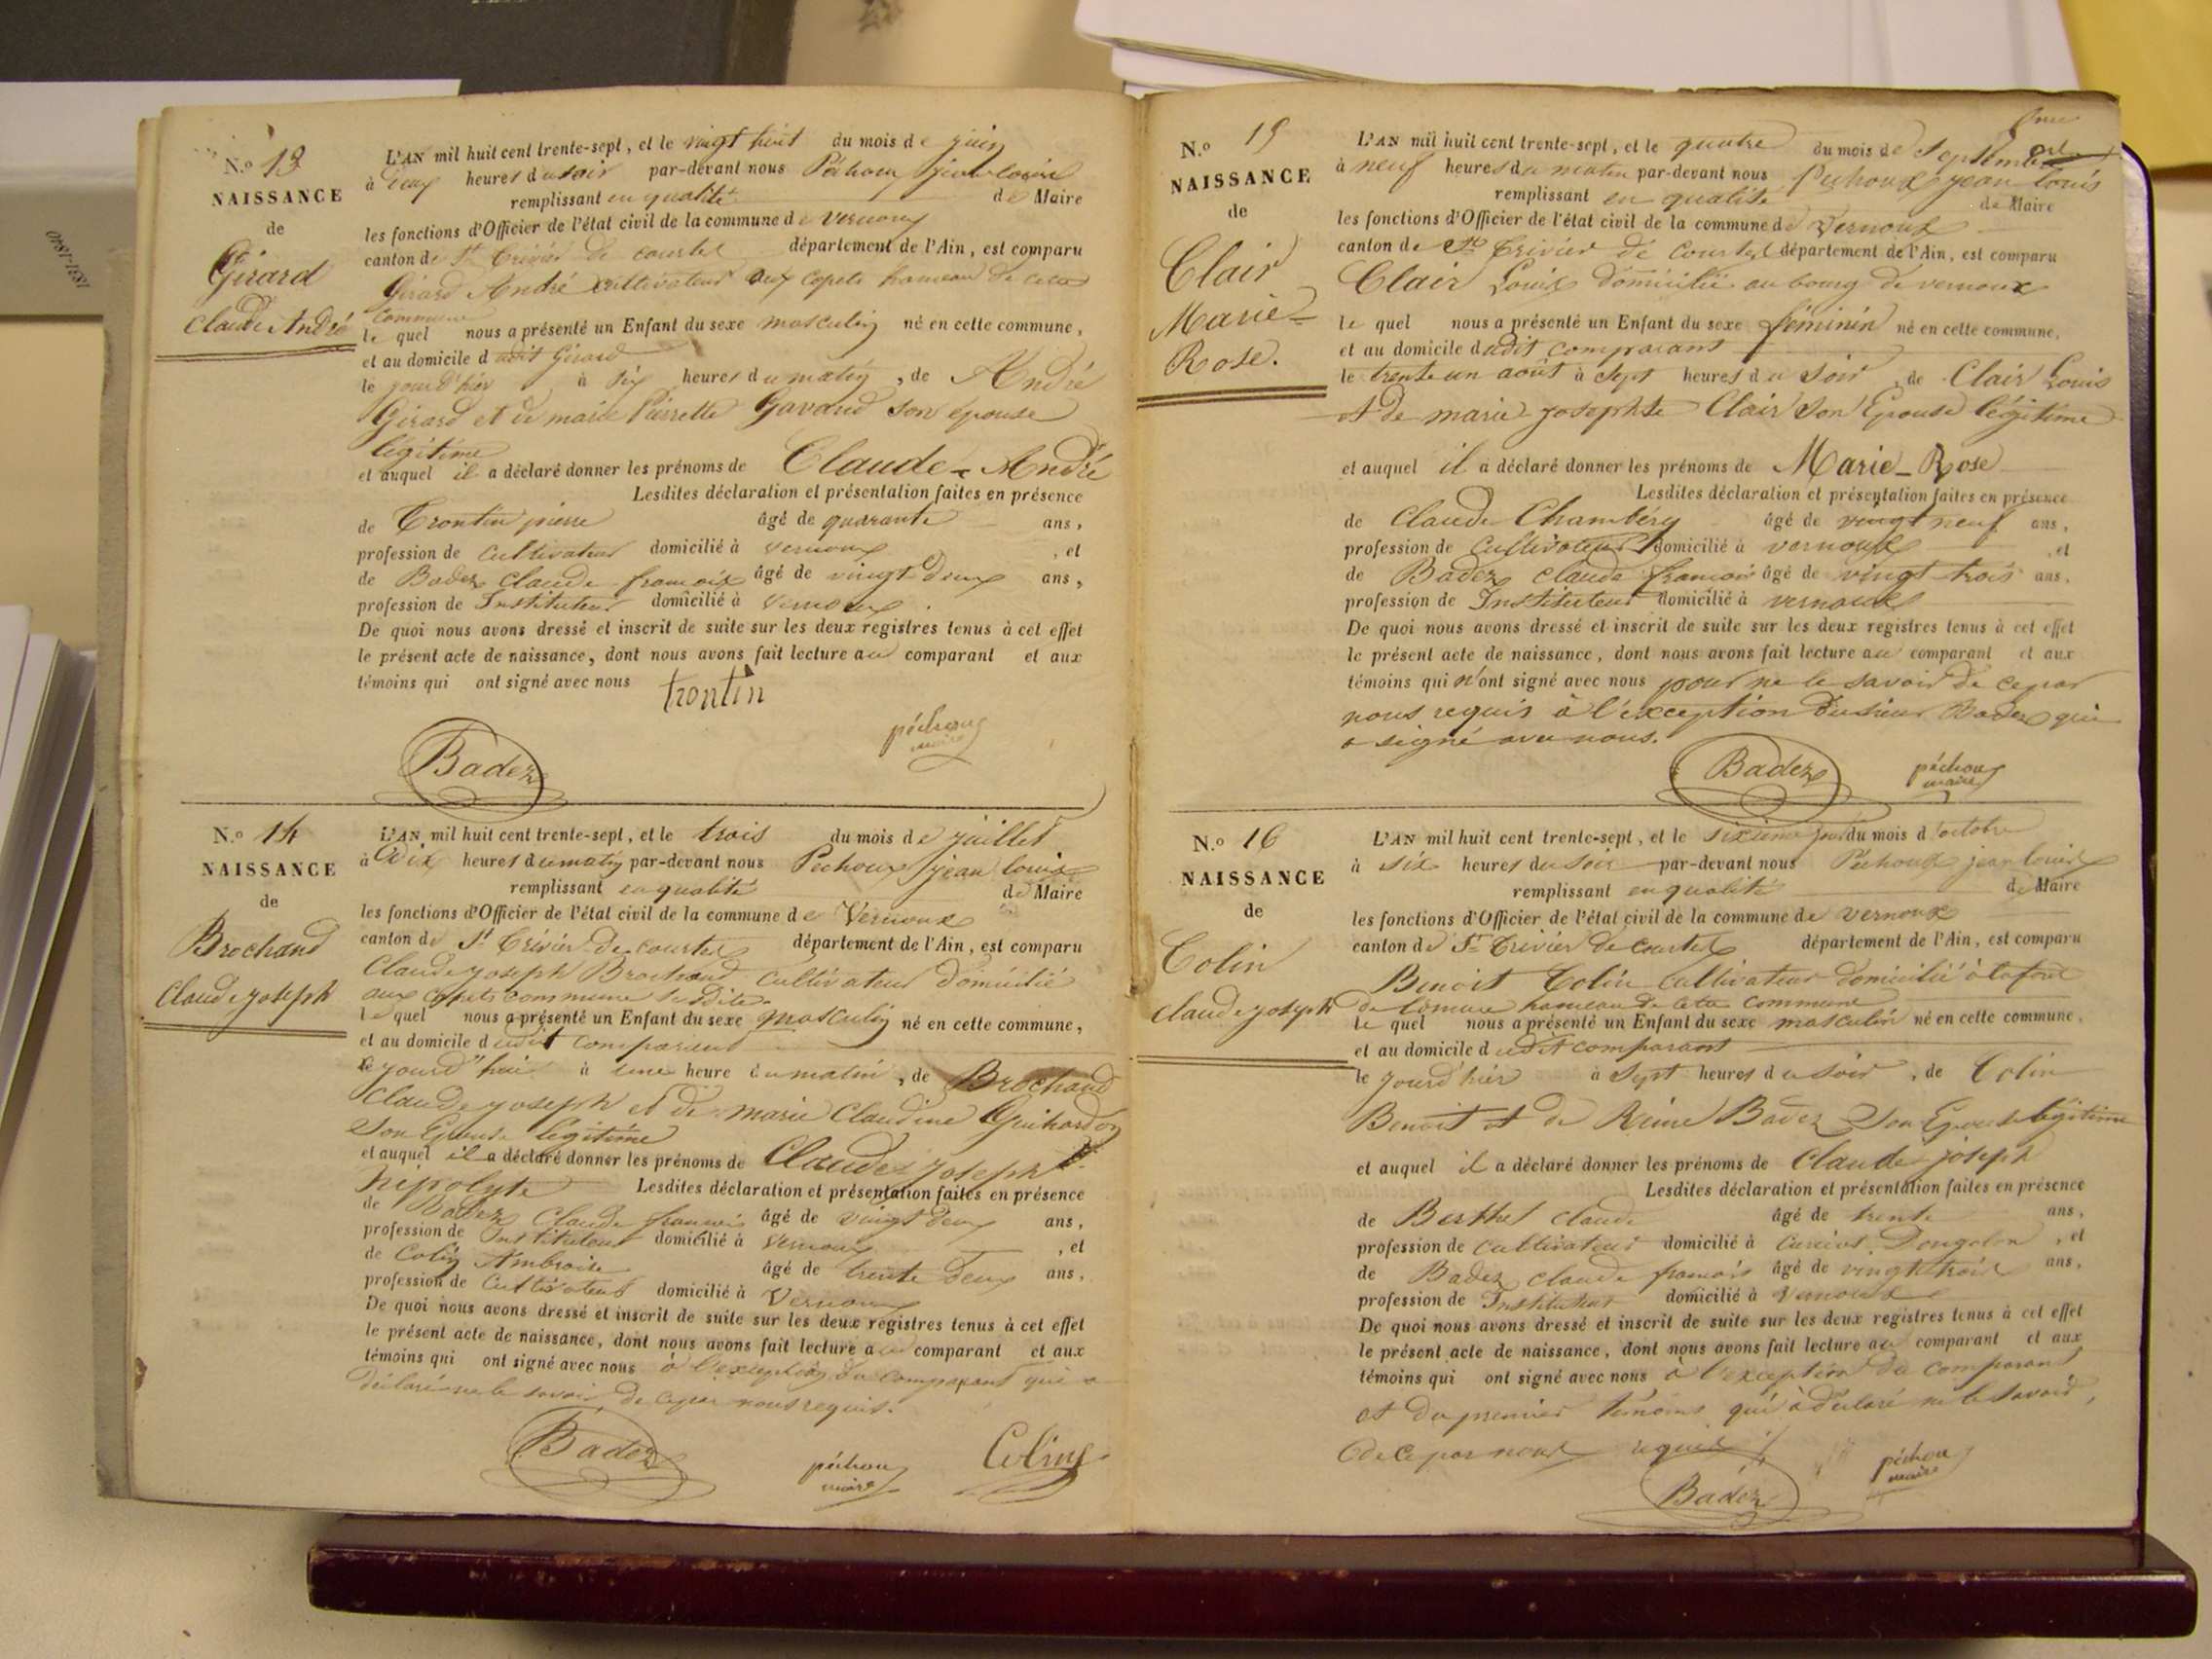 N.o 13
NAISSANCE
de
Girard
Claude André
L'AN mil huit cent trente-sept, et le vingt huit du mois de juin
à deux heures du soir par-devant nous Péchoux jean louis
remplissant en qualité de Maire
les fonctions d'Officier de l'état civil de la commune de Vernoux
canton de St Trivier de courtes département de l'Ain, est comparu
Girard André cultivateur aux copets hameau de cette
commune
le quel nous a présenté un Enfant du sexe masculin né en cette commune,
et au domicile dudit Girard
le jourd'hier à six heures du matin, de André
Girard et de marie Pierrette Gavand son épouse
légitime
et auquel il a déclaré donner les prénoms de Claude-André
Lesdites déclaration et présentation faites en présence
de Trontin pierre âgé de quarante ans,
profession de cultivateur domicilié à vernoux, et
de Badez Claude françois âgé de vingt deux ans,
profession de Instituteur domicilié à vernoux.
De quoi nous avons dressé et inscrit de suite sur les deux registres tenus à cet effet
le présent acte de naissance, dont nous avons fait lecture au comparant et aux
témoins qui ont signé avec nous
trontin
péchoux
maire
Badez
N.o 14
NAISSANCE
de
Brochand
Claude joseph
L'AN mil huit cent trente-sept, et le trois du mois de juillet
à Dix heures du matin par-devant nous Pechoux jean louis
remplissant en qualité de Maire
les fonctions d'Officier de l'état civil de la commune de Vernoux
canton de St Trivier de courtes département de l'Ain, est comparu
Claude joseph Brochand cultivateur domicilié
aux copets commune susdite
le quel nous a présenté un Enfant du sexe masculin né en cette commune,
et au domicile dudit comparant
le jourd'hui à une heure du matin, de Brochand
Claude joseph et de marie Claudine Guichardon
son Epouse légitime
et auquel il a déclaré donner les prénoms de Claude joseph
hipolyte Lesdites déclaration et présentation faites en présence
de Badez Claude françois âgé de vingt deux ans,
profession de Instituteur domicilié à Vernoux, et
de Colin Ambroise âgé de trente deux ans,
profession de Cultivateur domicilié à Vernoux
De quoi nous avons dressé et inscrit de suite sur les deux registres tenus à cet effet
le présent acte de naissance, dont nous avons fait lecture au comparant et aux
témoins qui ont signé avec nous à l'exception du comparant qui a
déclaré ne le savoir de ce par nous requis.
Badez
péchoux
maire
Colin
N.o 15
NAISSANCE
de
Clair
Marie-
Rose.
L'AN mil huit cent trente-sept, et le quatre du mois de septembre
à neuf heures du matin par-devant nous Pechoux jean louis
remplissant en qualité de Maire
les fonctions d'Officier de l'état civil de la commune de Vernoux
canton de St Trivier de Courtes département de l'Ain, est comparu
Clair Louis domicilié au bourg de vernoux
le quel nous a présenté un Enfant du sexe féminin né en cette commune,
et au domicile dudit comparant
le trente un août à sept heures du soir, de Clair Louis
et de marie josephte Clair son Epouse légitime
et auquel il a déclaré donner les prénoms de Marie-Rose
Lesdites déclaration et présentation faites en présence
de Claude Chambéry âgé de vingt neuf ans,
profession de Cultivateur domicilié à vernoux, et
de Badez claude françois âgé de vingt trois ans,
profession de Instituteur domicilié à vernoux
De quoi nous avons dressé et inscrit de suite sur les deux registres tenus à cet effet
le présent acte de naissance, dont nous avons fait lecture au comparant et aux
témoins qui n'ont signé avec nous pour ne le savoir de ce par
nous requis à l'exception du sieur Badez qui
a signé avec nous.
Badez
péchoux
maire
N.o 16
NAISSANCE
de
Colin
claude joseph
L'AN mil huit cent trente-sept, et le sixieme jour du mois d'octobre
à six heures du soir par-devant nous Péchoux jean louis
remplissant en qualité de Maire
les fonctions d'Officier de l'état civil de la commune de vernoux
canton de St Trivier de courtes département de l'Ain, est comparu
Benoit Colin cultivateur domicilié à
hameau de cette commune
le quel nous a présenté un Enfant du sexe masculin né en cette commune,
et au domicile dudit comparant
le jourd'hier à sept heures du soir, de Colin
Benoit et de Reine Badez son Epouse légitime
et auquel il a déclaré donner les prénoms de Claude joseph
Lesdites déclaration et présentation faites en présence
de Berthet claude âgé de trente ans,
profession de cultivateur domicilié à Curciat Dongalon, et
de Badez claude françois âgé de vingt trois ans,
profession de Instituteur domicilié à Vernoux
De quoi nous avons dressé et inscrit de suite sur les deux registres tenus à cet effet
le présent acte de naissance, dont nous avons fait lecture au comparant et aux
témoins qui ont signé avec nous à l'exception du comparant
et du premier témoins qui a déclaré ne le savoir,
de ce par nous requis
Badez
péchoux
maire